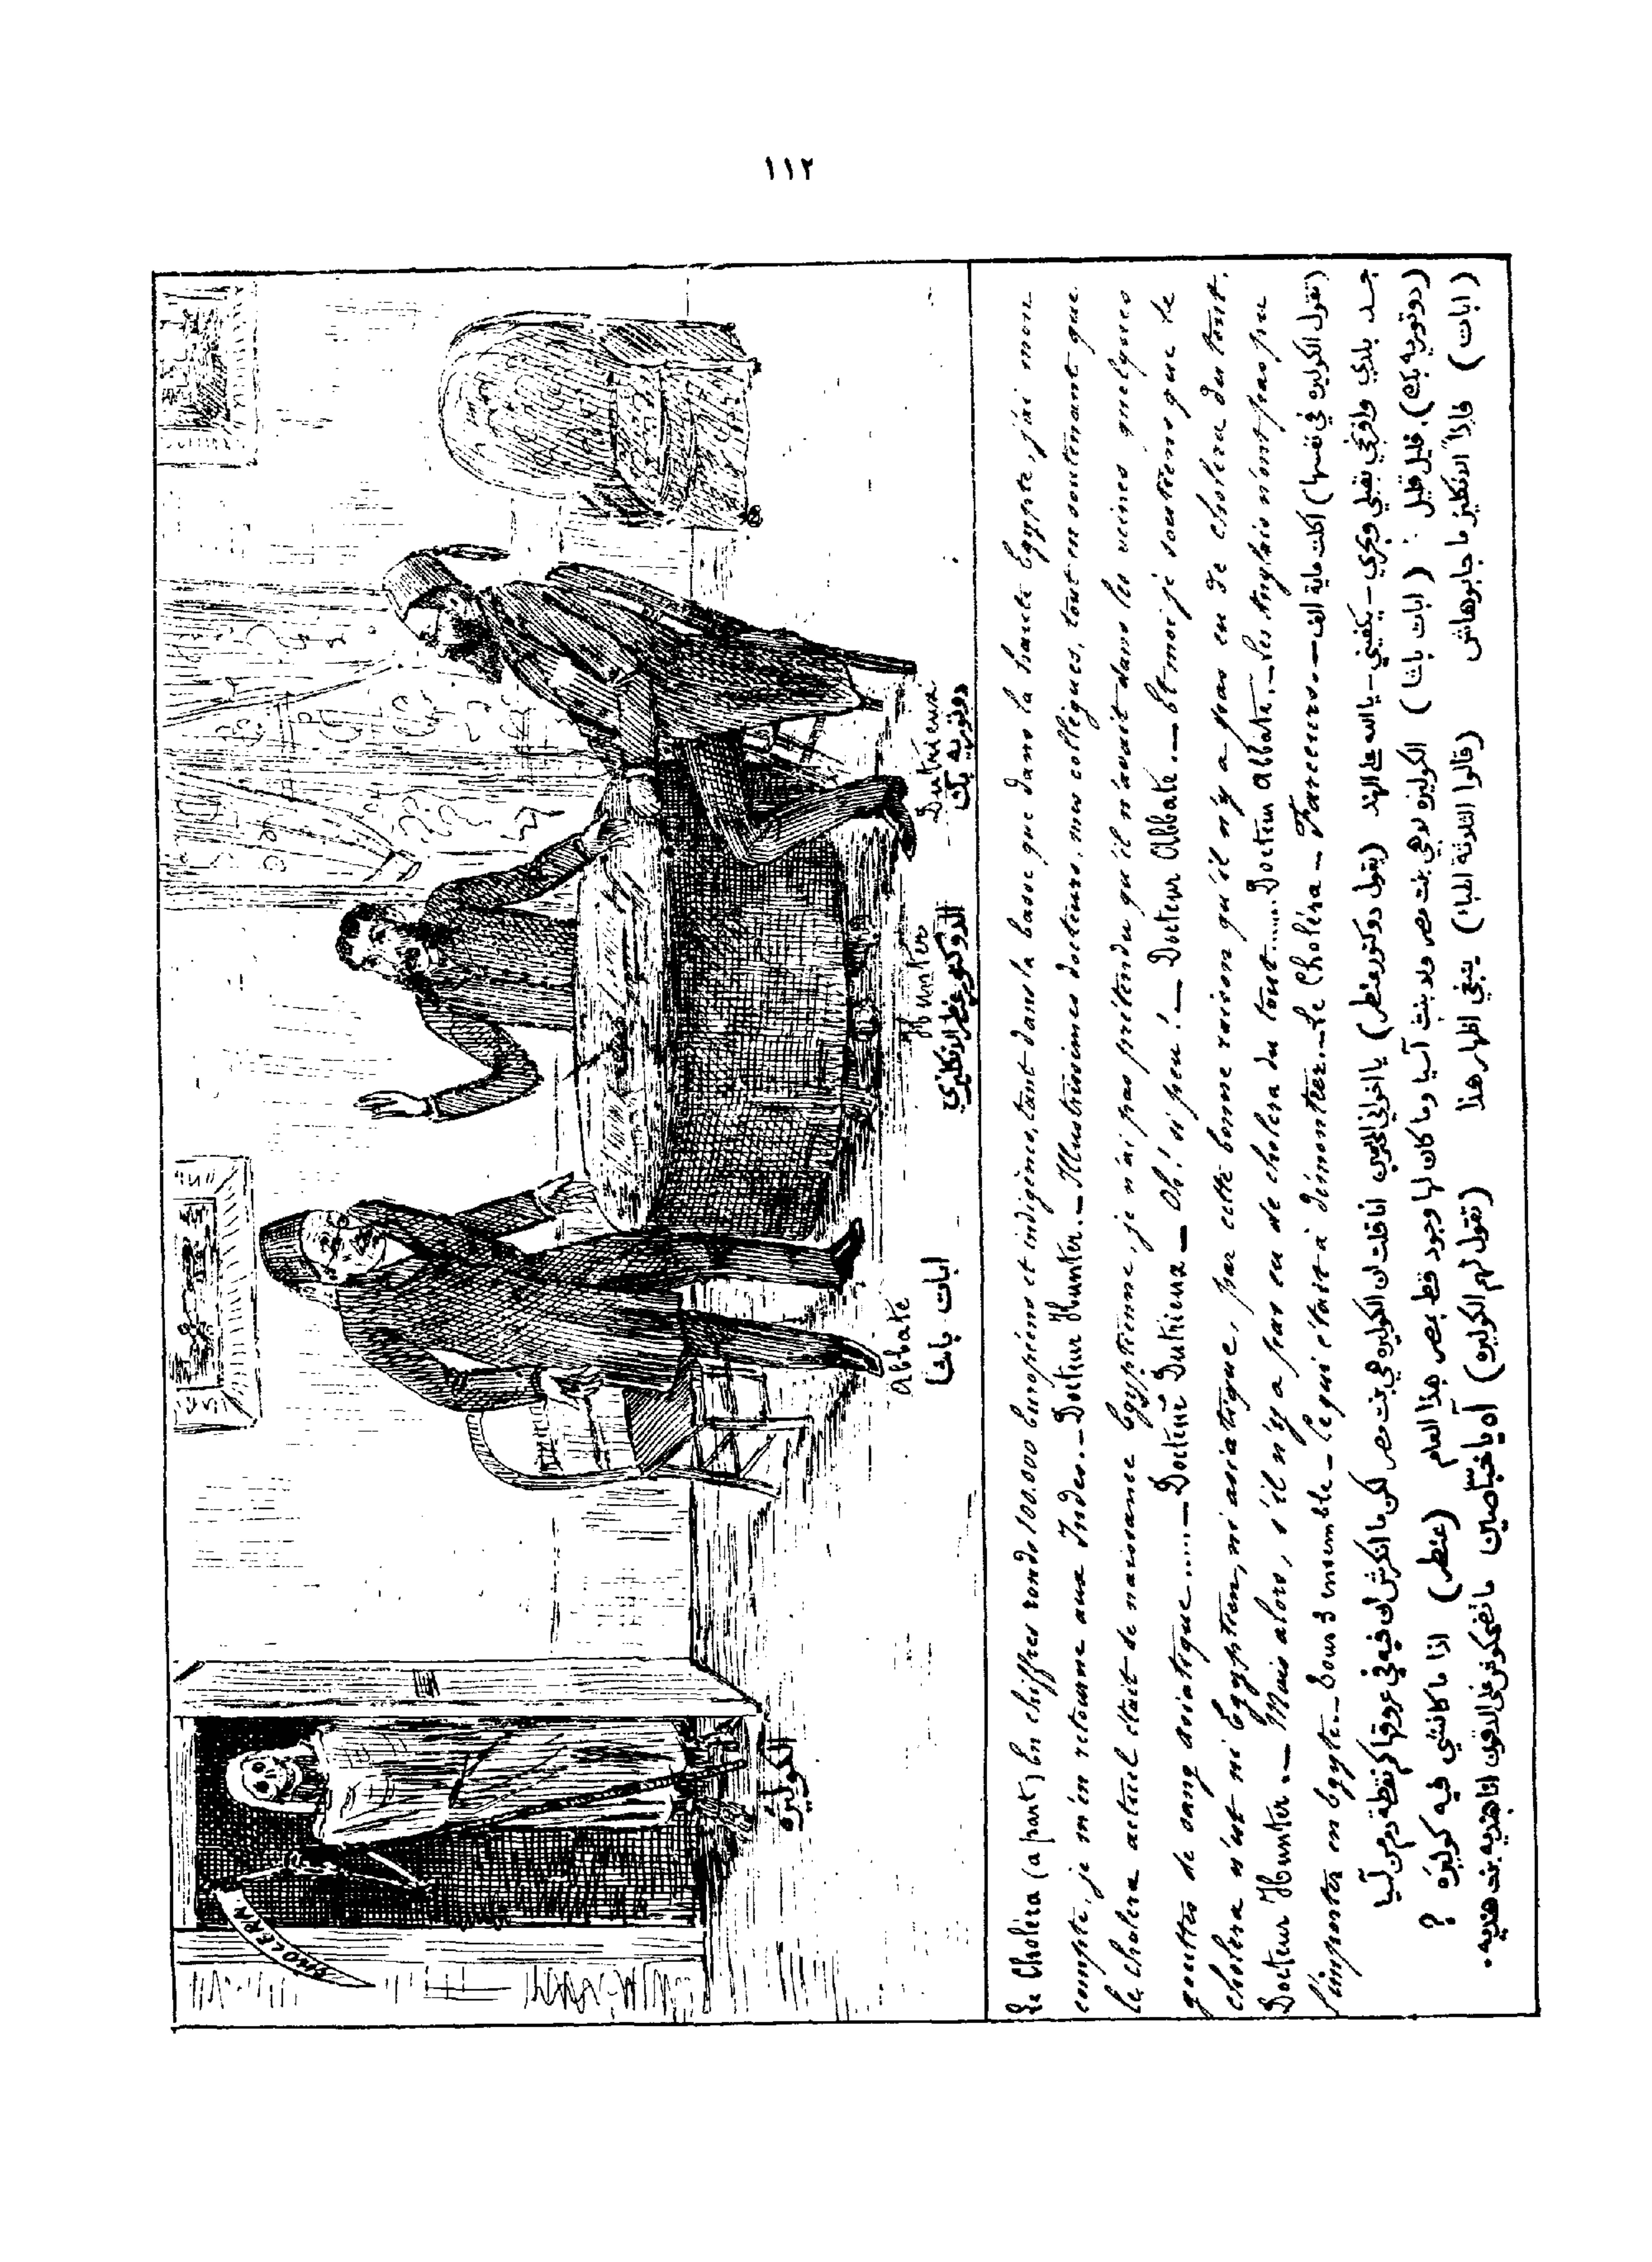 ١١٢
CHOLERA
الكوليره
Abbate
ابات باشا
Hunter
الدوكتور غنطر الانكليزي
Dutrieux
دوتريه بك
Le Cholera (a part) En chiffres ronds 100.000 Européens et indigènes, tant dans la basse que dans la haute Egypte, j'ai mon
compte, je m'en retourne aux Indes. _ Docteur Hunter. _ Illustrissimes docteurs, mes collègues, tout en soutenant que
le cholera actuel était de naissance Egyptienne, je n'ai pas prétendu qu'il n'avait dans les veines quelques
gouttes de sang asiatique ..... _ Docteur Dutrieux _ Oh! si peu! _ Docteur Abbate. _ Et moi je soutiens que le
cholera n'est ni Egyptien, ni asiatique, par cette bonne raison qu'il n'y a pas eu de cholera du tout.
Docteur Hunter. _ Mais alors, s'il n'y a pas eu de cholera du tout ..... Docteur Abbate. _ Les Anglais n'ont pas pu
l'importer en Egypte. _ Tous 3 ensemble _ Ce qui était à démontrer. _ Le Choléra _ Farceurs. _ (تقول الكوليره في نفسها) اكلت ماية الف
جدع بلدي وافرنجي بقبلي وبحري - يكفيني - يا الله على الهند (يقول دوكتور غنطر) يا اخواني انا قلت ان الكوليره هي بنت مصر لكن ما انكرش ان فيه في عروقها كم نقطة دم من آسيا
(دوتريه بك) قليل قليل . (ابات باشا) الكوليره لا هي بنت مصر ولا بنت آسيا وما كان لها وجود قط بمصر هذا العام (غنطر) اذا ما كانشي فيه كوليره ؟
(ابات) فاذاً الانكليز ما جابوهاش (قالوا الثلاثة اطباء) ينبغي اظهار هذا (تقول لهم الكوليره) آه يا خباصين ما تضحكوش على الدقون انا هنديه بنت هنديه .